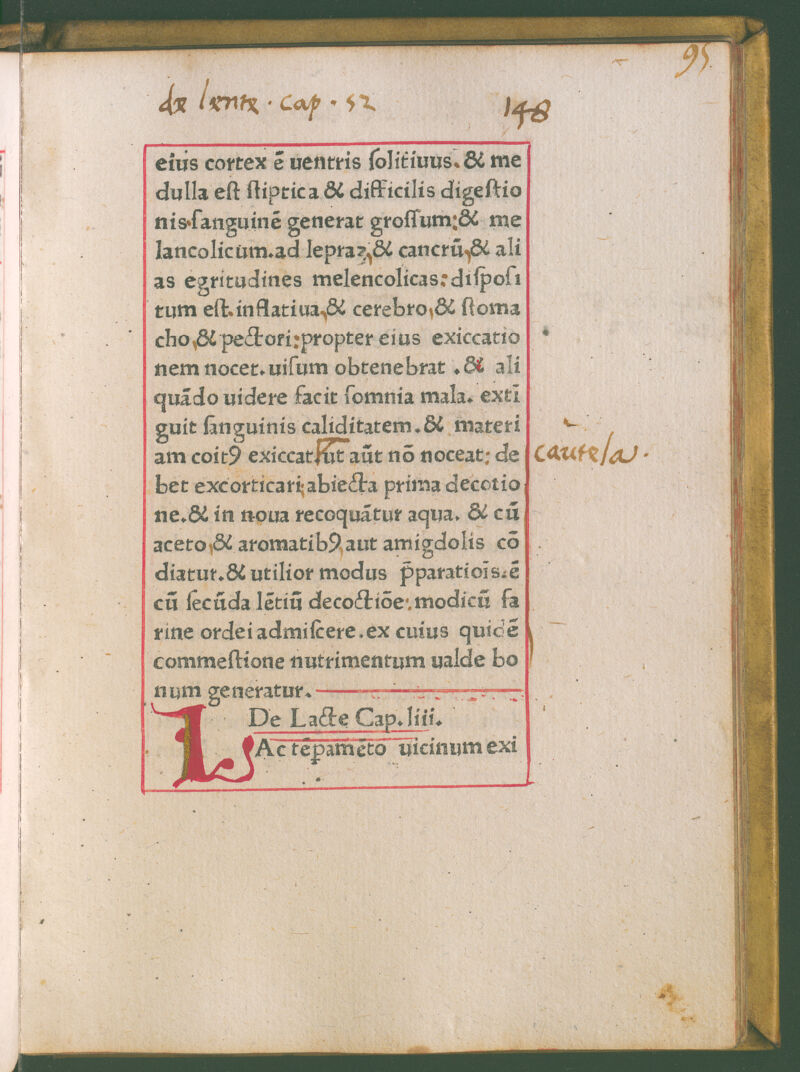 95
de lente · cap · 52
148
eius cortex ē uentris ſolitiuus. & me
dulla eſt ſtiptica & difficilis digeſtio
nis.ſanguinē generat groſſum:& me
lancolicum.ad lepraꝫ,& cancrū,& ali
as egritudines melencolicas: diſpoſi
tum eſt.inflatiua,& cerebro,& ſtoma
cho,& pectori:propter eius exiccatio
nem nocet.uiſum obtenebrat .& ali
quādo uidere facit ſomnia mala. extī
guit ſanguinis caliditatem.& materi
am coitꝰ exiccat ut aūt nō noceat: de
bet excorticari,abiecta prima decotio
ne.& in noua recoquātur aqua. & cū
aceto,& aromatibꝰ,aut amigdolis cō
diatur.& utilior modus p̄paratiōis:ē
cū ſecūda lētiū decoctiōe:modicū fa
rine ordei admiſcere.ex cuius quidē
commeſtione nutrimentum ualde bo
num generatur.
cautela ·
De Lacte Cap.liii.
L Ac tēpamēto uicinum exi